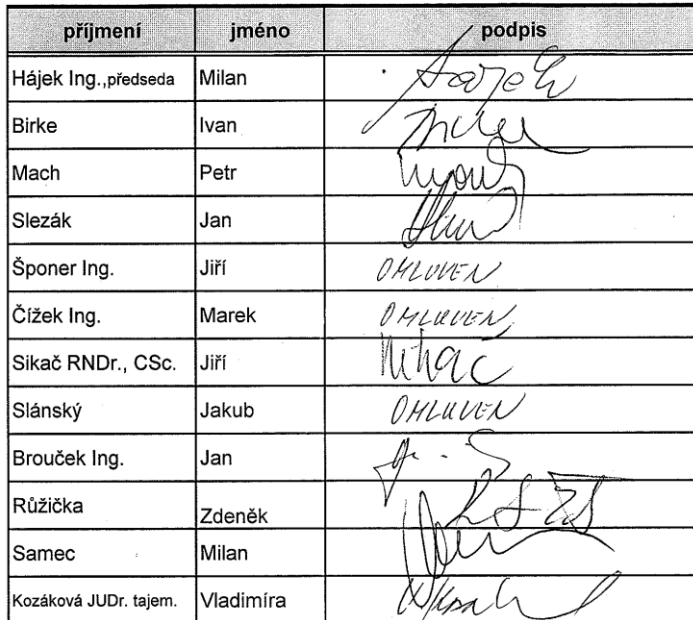 příjmení jméno podpis
Hájek Ing.,předseda Milan
Birke Ivan
Mach Petr
Slezák Jan
Šponer Ing. Jiří OMLUVEN
Čížek Ing. Marek OMLUVEN
Sikač RNDr., CSc. Jiří
Slánský Jakub OMLUVEN
Brouček Ing. Jan
Růžička Zdeněk
Samec Milan
Kozáková JUDr. tajem. Vladimíra